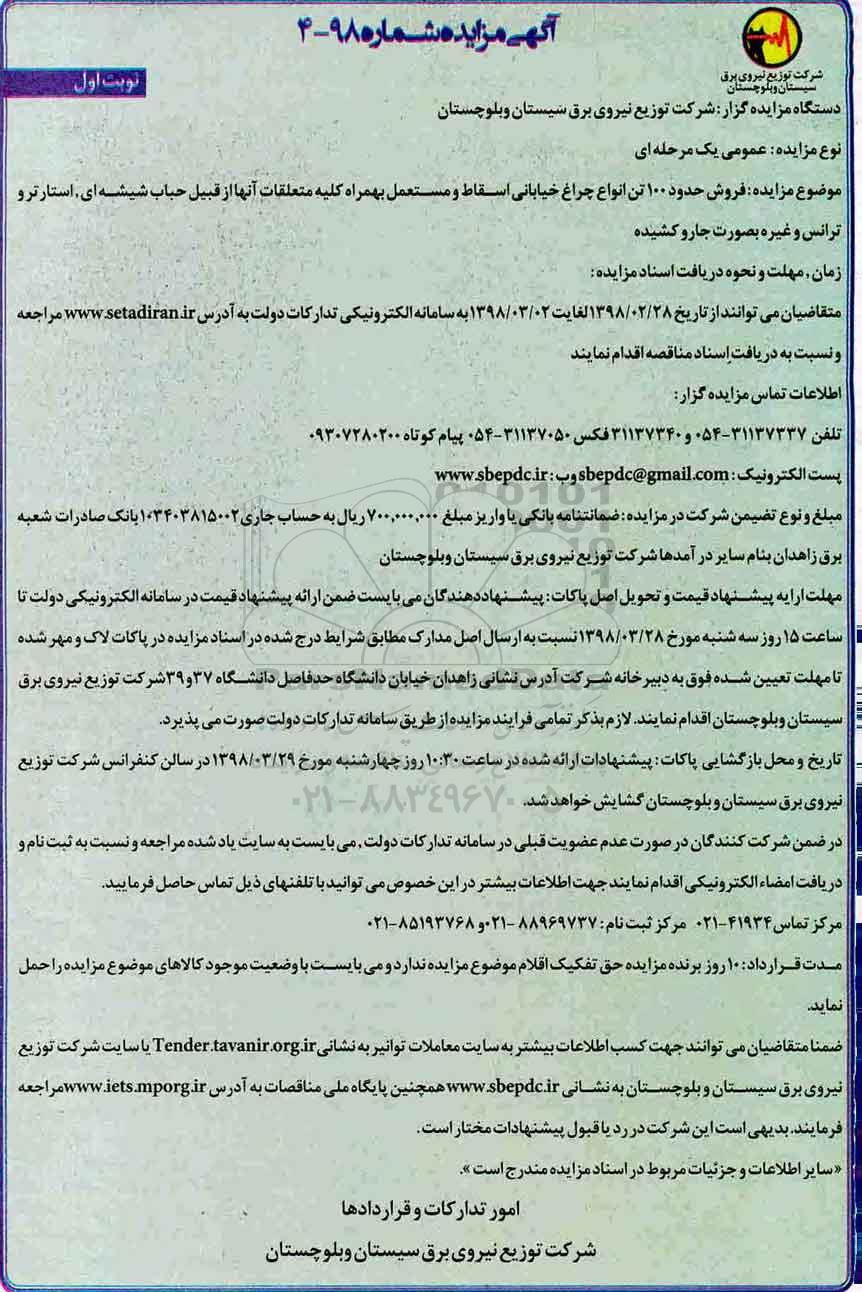 آگهی مزایده شماره ۹۸-۴
شرکت توزیع نیروی برق
سیستان وبلوچستان
نوبت اول
دستگاه مزایده گزار : شرکت توزیع نیروی برق سیستان وبلوچستان
نوع مزایده : عمومی یک مرحله ای
موضوع مزایده : فروش حدود ۱۰۰ تن انواع چراغ خیابانی اسقاط و مستعمل بهمراه کلیه متعلقات آنها از قبیل حباب شیشه ای , استارتر و
ترانس و غیره بصورت جارو کشیده
زمان , مهلت و نحوه دریافت اسناد مزایده :
متقاضیان می توانند از تاریخ ۱۳۹۸/۰۲/۲۸ لغایت ۱۳۹۸/۰۳/۰۲ به سامانه الکترونیکی تدارکات دولت به آدرس www.setadiran.ir مراجعه
و نسبت به دریافت اسناد مناقصه اقدام نمایند
اطلاعات تماس مزایده گزار :
تلفن ۳۱۱۳۷۳۳۷-۰۵۴ و ۳۱۱۳۷۳۴۰ فکس ۳۱۱۳۷۰۵۰-۰۵۴ پیام کوتاه ۰۹۳۰۷۲۸۰۲۰۰
پست الکترونیک : sbepdc@gmail.com وب : www.sbepdc.ir
مبلغ و نوع تضیمن شرکت در مزایده : ضمانتنامه بانکی یا واریز مبلغ ۷۰۰,۰۰۰,۰۰۰ ریال به حساب جاری ۰۱۰۳۴۰۳۸۱۵۰۰۲ بانک صادرات شعبه
برق زاهدان بنام سایر در آمدها شرکت توزیع نیروی برق سیستان وبلوچستان
مهلت ارایه پیشنهاد قیمت و تحویل اصل پاکات : پیشنهاددهندگان می بایست ضمن ارائه پیشنهاد قیمت در سامانه الکترونیکی دولت تا
ساعت ۱۵ روز سه شنبه مورخ ۱۳۹۸/۰۳/۲۸ نسبت به ارسال اصل مدارک مطابق شرایط درج شده در اسناد مزایده در پاکات لاک و مهر شده
تا مهلت تعیین شده فوق به دبیرخانه شرکت آدرس نشانی زاهدان خیابان دانشگاه حدفاصل دانشگاه ۳۷ و ۳۹ شرکت توزیع نیروی برق
سیستان وبلوچستان اقدام نمایند. لازم بذکر تمامی فرایند مزایده از طریق سامانه تدارکات دولت صورت می پذیرد.
تاریخ و محل بازگشایی پاکات : پیشنهادات ارائه شده در ساعت ۱۰:۳۰ روز چهارشنبه مورخ ۱۳۹۸/۰۳/۲۹ در سالن کنفرانس شرکت توزیع
نیروی برق سیستان و بلوچستان گشایش خواهد شد.
در ضمن شرکت کنندگان در صورت عدم عضویت قبلی در سامانه تدارکات دولت , می بایست به سایت یاد شده مراجعه و نسبت به ثبت نام و
دریافت امضاء الکترونیکی اقدام نمایند جهت اطلاعات بیشتر در این خصوص می توانید با تلفنهای ذیل تماس حاصل فرمایید.
مرکز تماس ۴۱۹۳۴-۰۲۱ مرکز ثبت نام : ۸۸۹۶۹۷۳۷-۰۲۱ و ۸۵۱۹۳۷۶۸-۰۲۱
مدت قرارداد : ۱۰ روز برنده مزایده حق تفکیک اقلام موضوع مزایده ندارد و می بایست با وضعیت موجود کالاهای موضوع مزایده را حمل
نماید.
ضمنا متقاضیان می توانند جهت کسب اطلاعات بیشتر به سایت معاملات توانیر به نشانی Tender.tavanir.org.ir یا سایت شرکت توزیع
نیروی برق سیستان و بلوچستان به نشانی www.sbepdc.ir همچنین پایگاه ملی مناقصات به آدرس www.iets.mporg.ir مراجعه
فرمایند. بدیهی است این شرکت در رد یا قبول پیشنهادات مختار است .
«سایر اطلاعات و جزئیات مربوط در اسناد مزایده مندرج است ».
امور تدارکات و قراردادها
شرکت توزیع نیروی برق سیستان وبلوچستان
۰۲۱-۸۸۳۴۹۶۷۰-۵